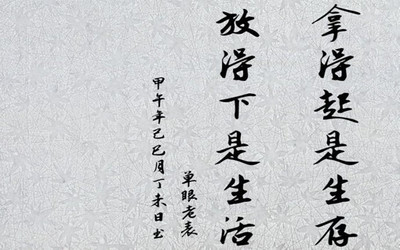 拿得起是生存
放得下是生活
甲午年己巳月丁未日书
单眼老表